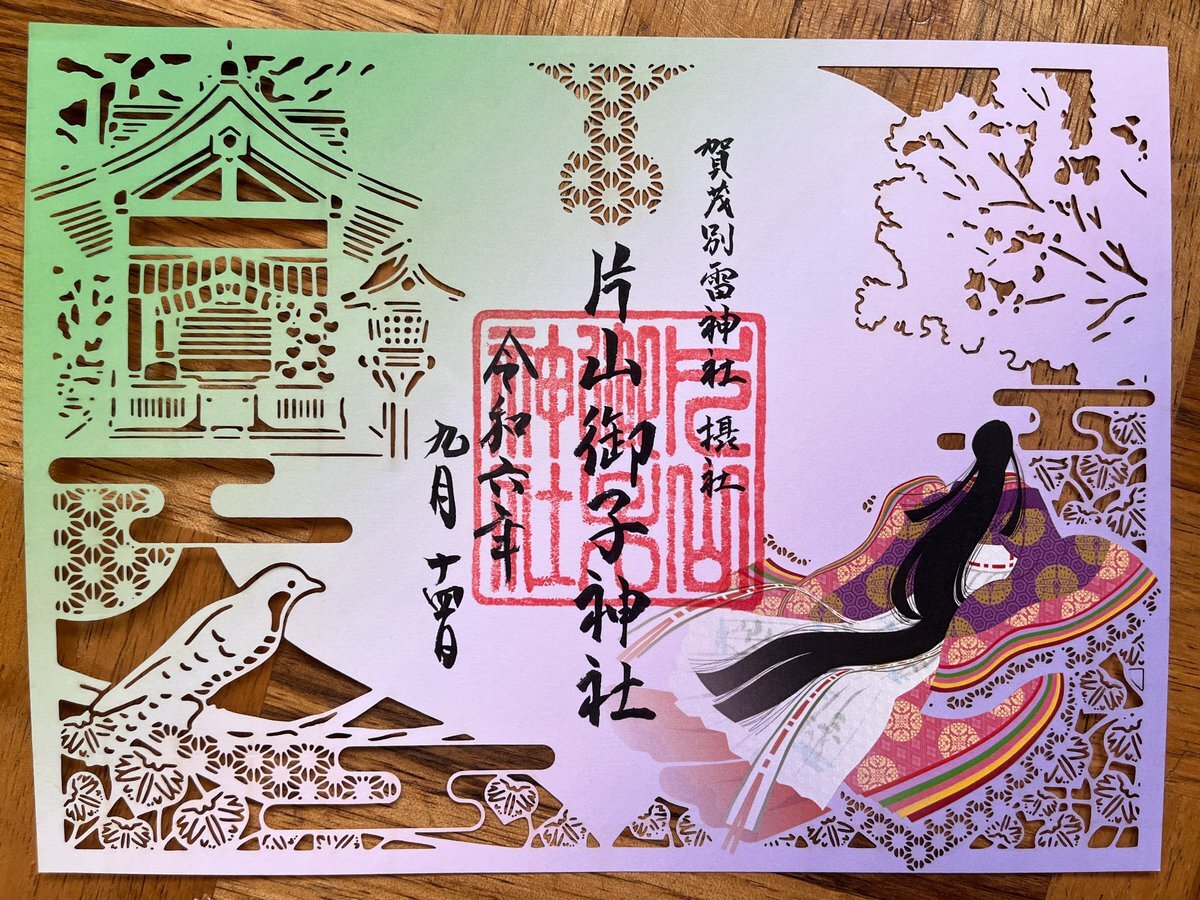 賀茂別雷神社 摂社
片山御子神社
令和六年
九月 十四日
片山
御子
神社